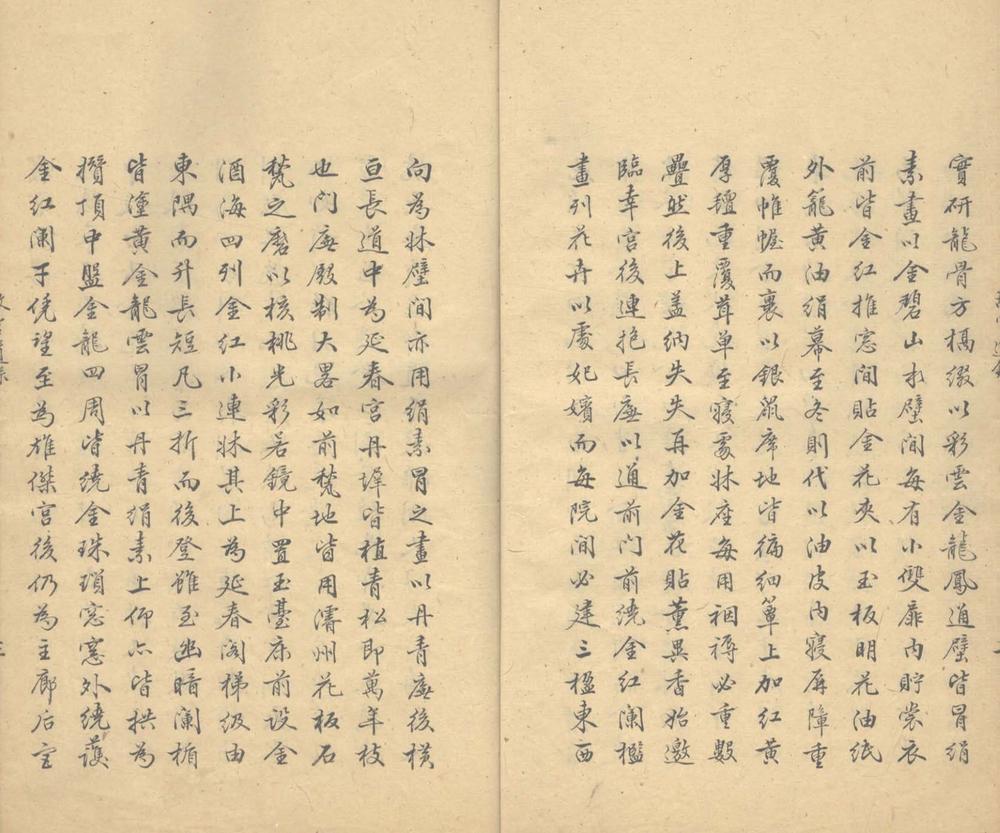 實研龍骨方槅綴以彩雲金龍鳳通壁皆冐絹
素畫以金碧山水壁間每有小雙扉內貯裳衣
前皆金紅推窓間貼金花夾以玉板明花油紙
外籠黄油絹幕至冬則代以油皮內寢屏障重
覆帷幄而裏以銀鼠席地皆徧細簟上加紅黄
厚氊重覆茸单至寢䖏牀座每用裀褥必重數
疊然後上盖納失失再加金花貼薫異香始邀
臨幸宮後連抱長廡以通前门前繞金紅闌檻
畫列花卉以處妃嬪而每院間必建三楹東西
向為牀壁间亦用絹素冐之畫以丹青廡後橫
亘長道中為延春宮丹墀皆植青松即萬年枝
也门廡殿制大畧如前甃地皆用濬州花板石
甃之磨以核桃光彩若鏡中置玉䑓床前设金
酒海四列金紅小連牀其上為延春阁梯级由
東隅而升長短凡三折而後登雖至幽暗闌楯
皆塗黄金龍雲冐以丹青绢素上仰亦皆拱為
攢顶中盤金龍四周皆繞金珠瑣窓窓外繞護
金红阑干凭望至為雄傑宮後仍為主廊后宫